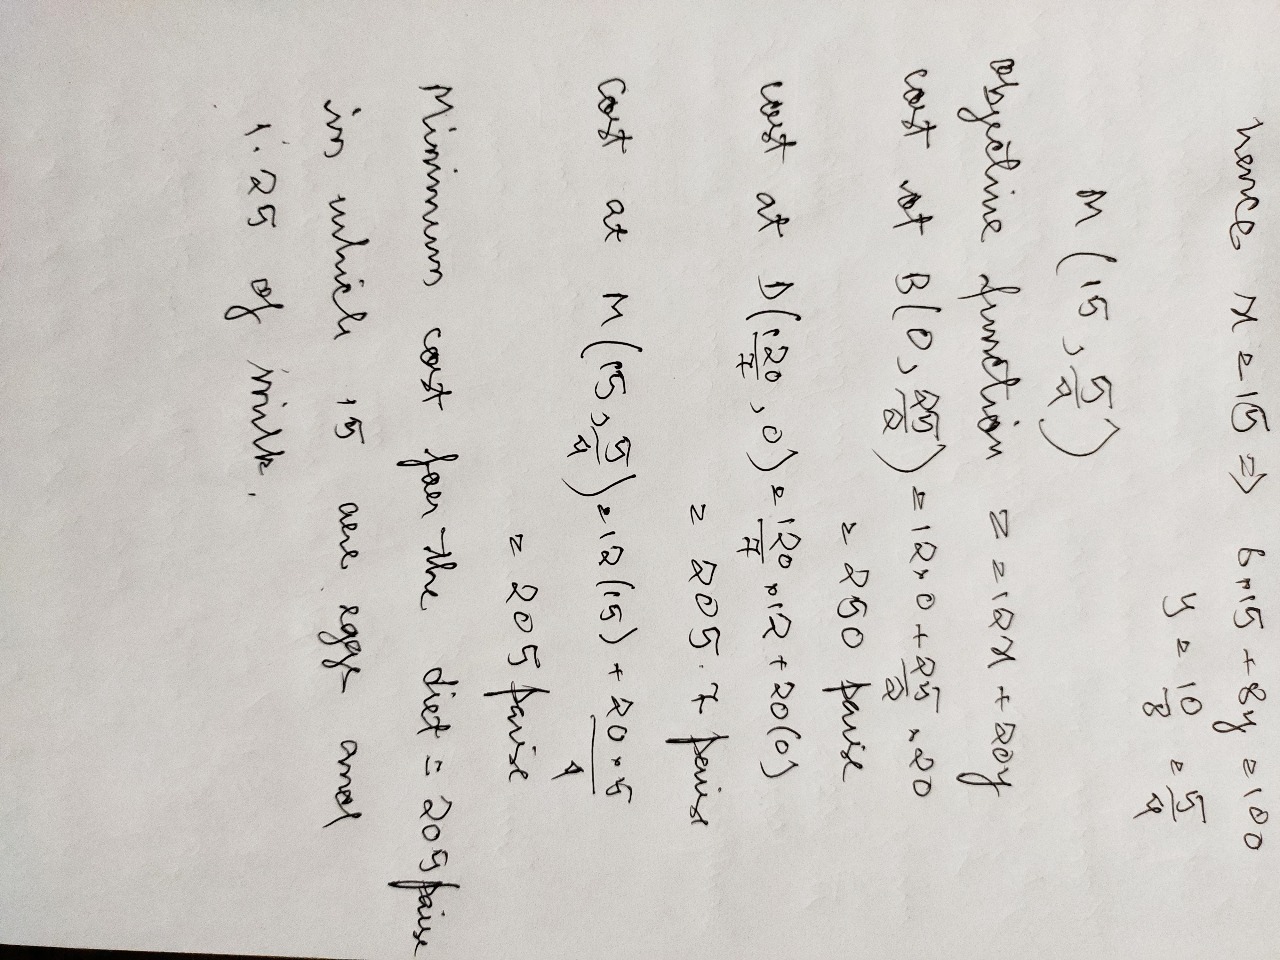 hence x = 15 ⇒ 6×15 + 8y = 100
y = 10/8 = 5/4
M (15, 5/4)
objective function z = 12x + 20y
cost at B(0, 25/2) = 12×0 + 25/2 × 20
= 250 paise
cost at D(120/7, 0) = 120/7 × 12 + 20(0)
= 205.7 paise
cost at M(15, 5/4) = 12(15) + 20×5/4
= 205 paise
Minimum cost for the diet = 205 paise
in which 15 are eggs and
1.25 of milk.